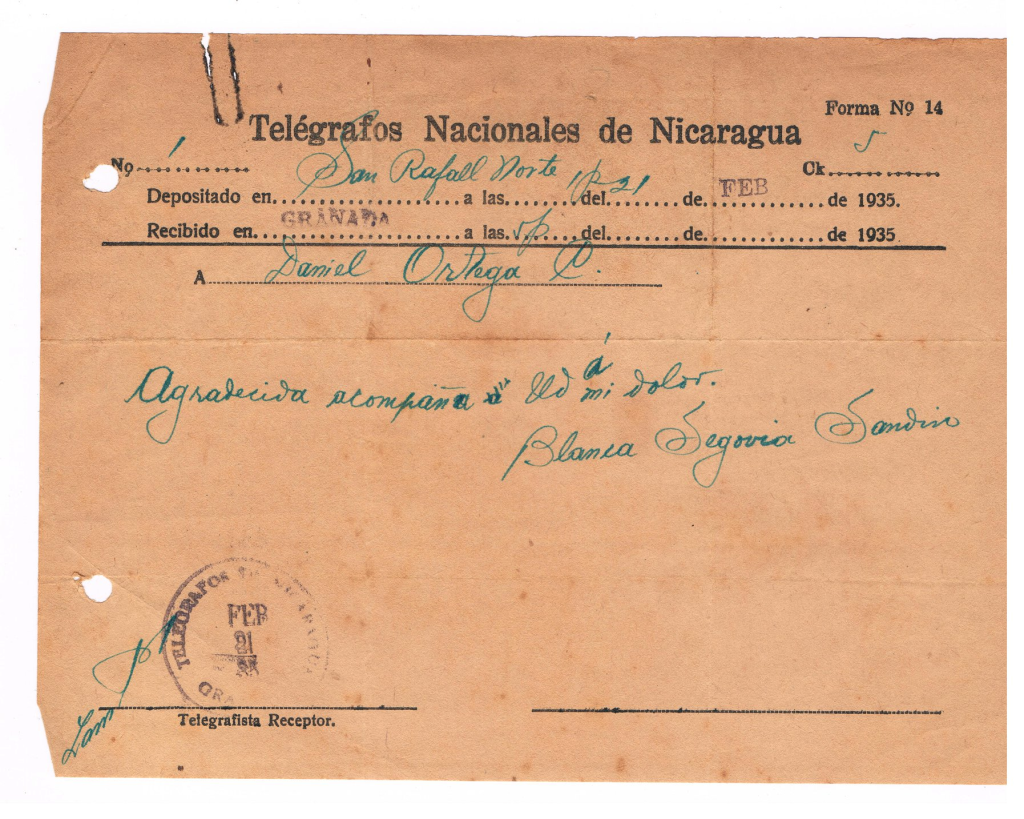 Forma Nº 14
Telégrafos Nacionales de Nicaragua
Nº 1 Ck 5
Depositado en San Rafael Norte a las 1 p del 21 de FEB de 1935.
Recibido en GRANADA a las 5p del de de 1935
A Daniel Ortega C.
Agradecida acompaña Ud á mi dolor.
Blanca Segovia Sandino
TELEGRAFOS DE NICARAGUA
FEB
21
35
GRA
Telegrafista Receptor.